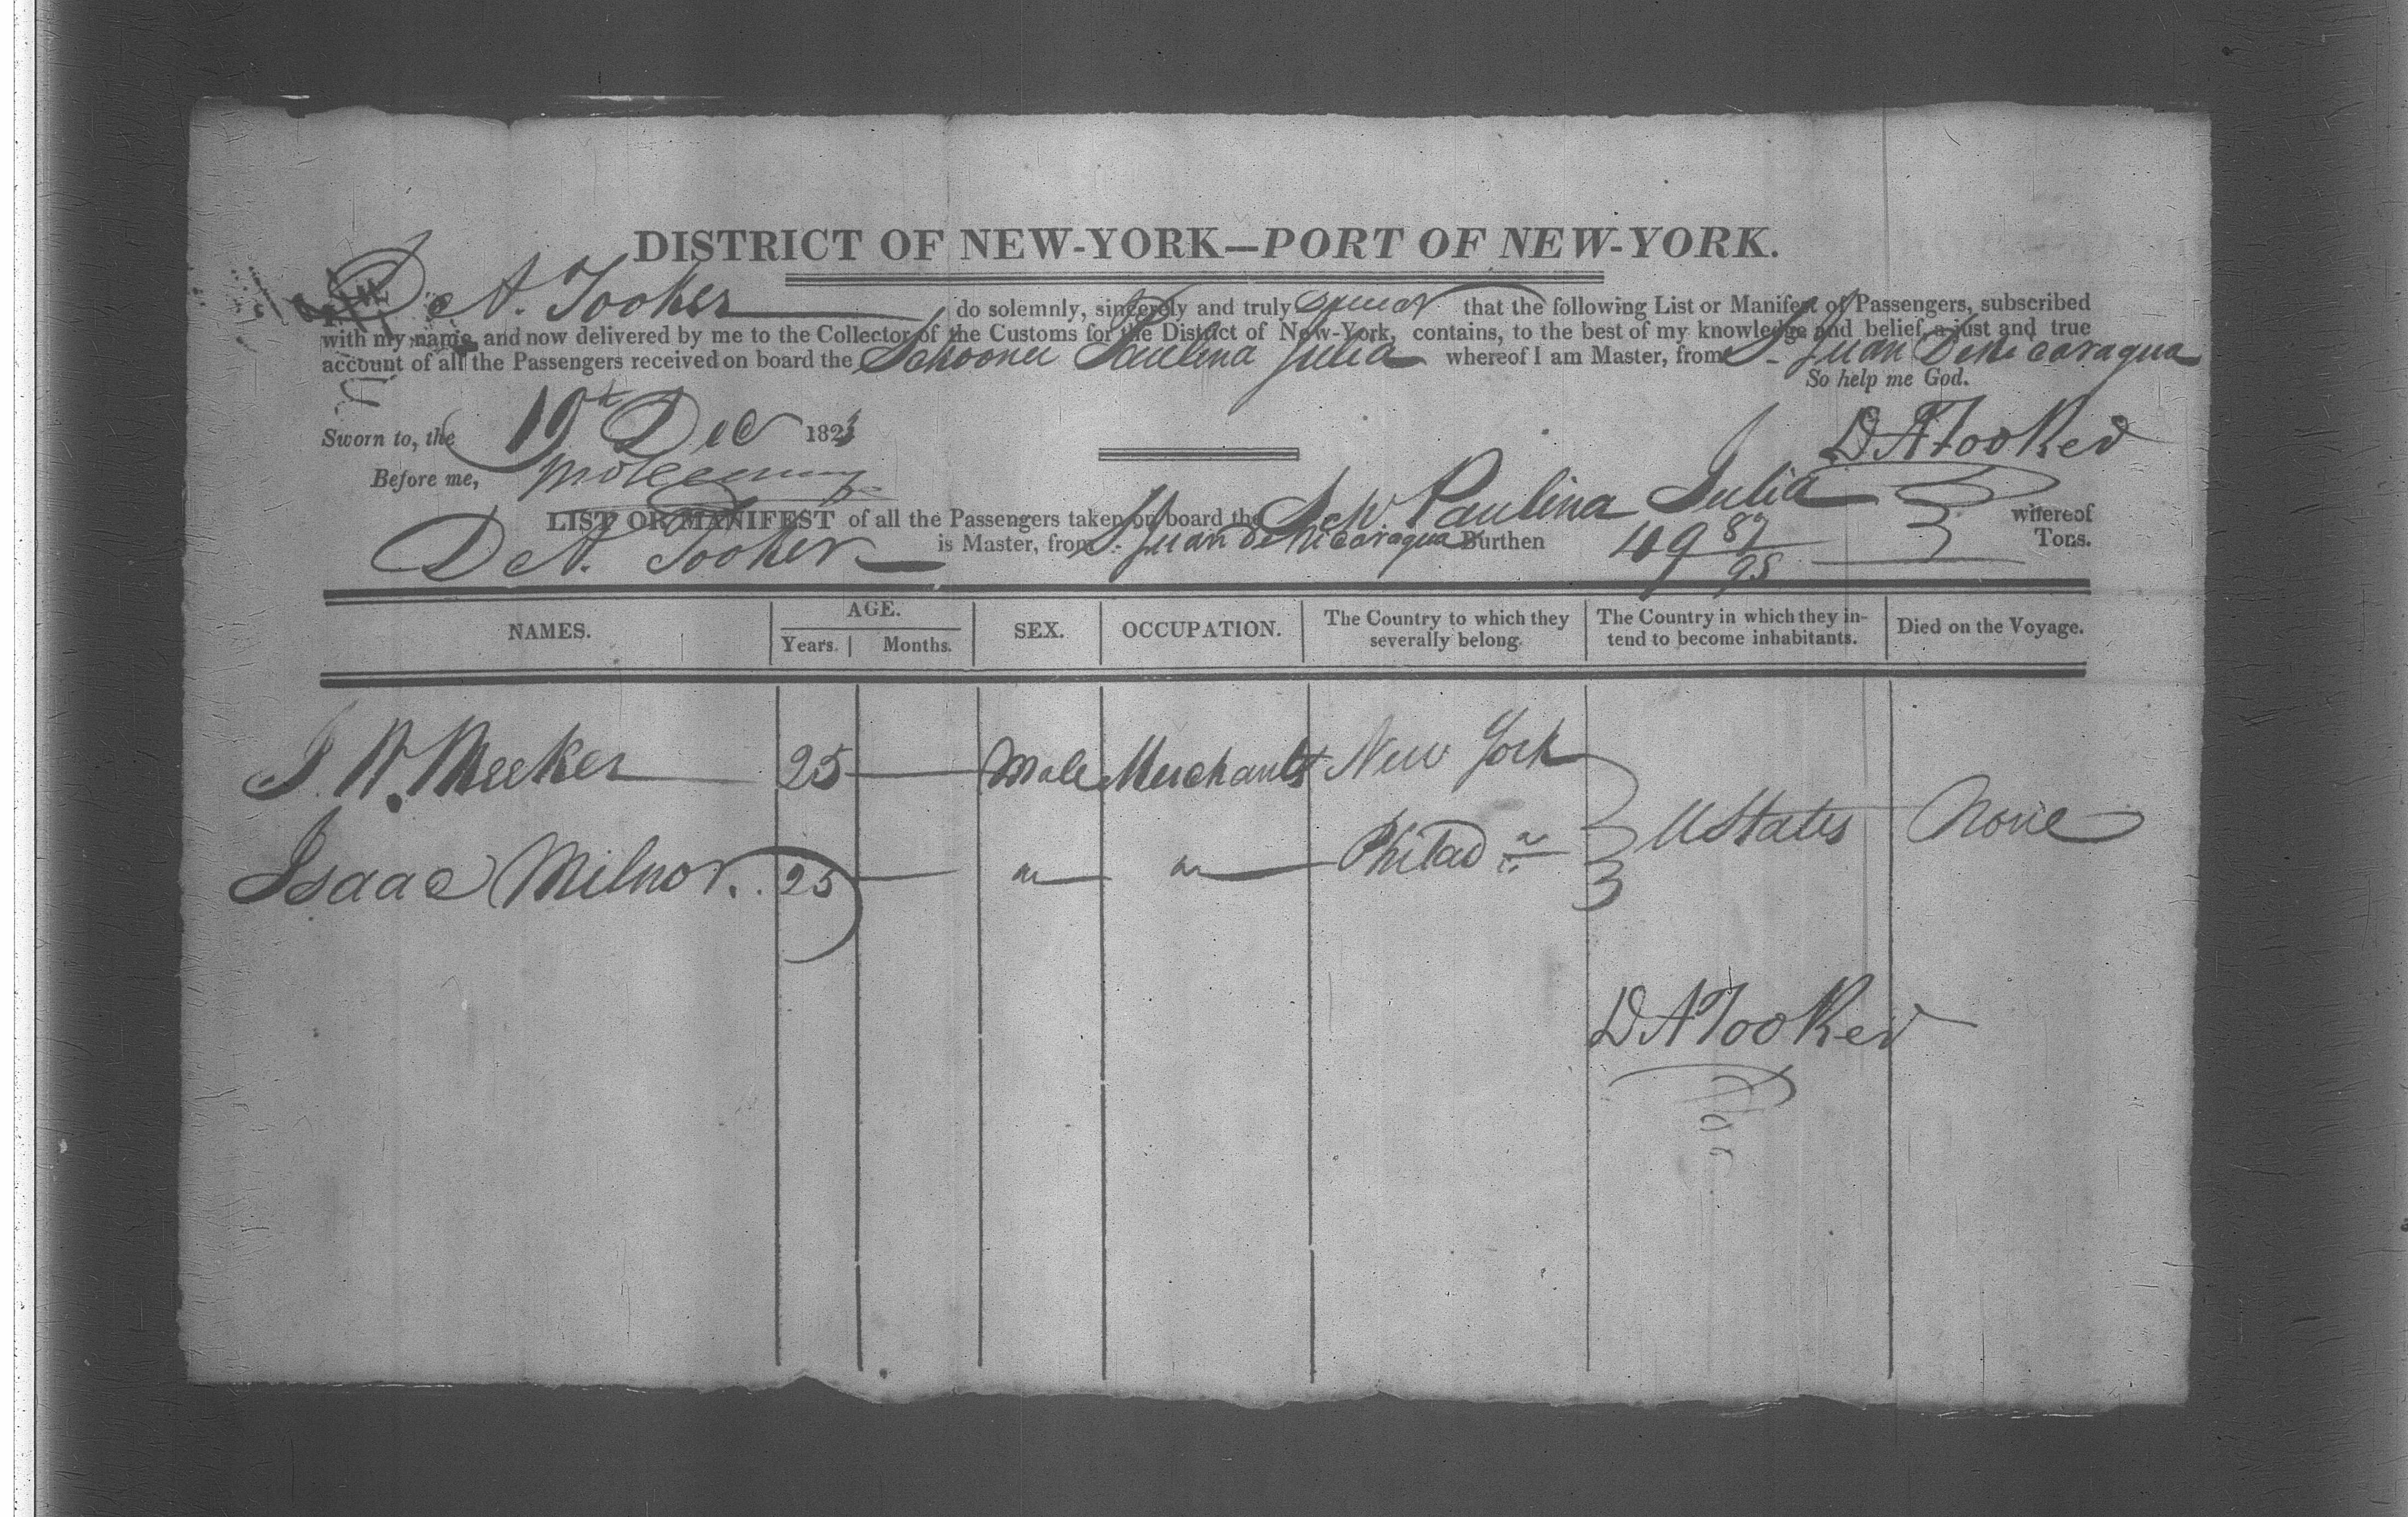 DISTRICT OF NEW-YORK—PORT OF NEW-YORK.
I, D A. Tooker do solemnly, sincerely and truly swear that the following List or Manifest of Passengers, subscribed
with my name, and now delivered by me to the Collector of the Customs for the District of New-York, contains, to the best of my knowledge and belief, a just and true
account of all the Passengers received on board the Schooner Paulina Julia whereof I am Master, from S. Juan De Nicaragua
So help me God.
Sworn to, the 19th Dec 1823
D A Tooker
Before me,
LIST OR MANIFEST of all the Passengers taken on board the Schr Paulina Julia whereof
D A. Tooker is Master, from S. Juan de Nicaragua Burthen 49 87/95 Tons.
NAMES. AGE. Years. Months. SEX. OCCUPATION. The Country to which they severally belong. The Country in which they intend to become inhabitants. Died on the Voyage.
J. W. Meeker 25 Male Merchants New York
UStates None
Isaac Milnor. 25 " " Philada
D A Tooker